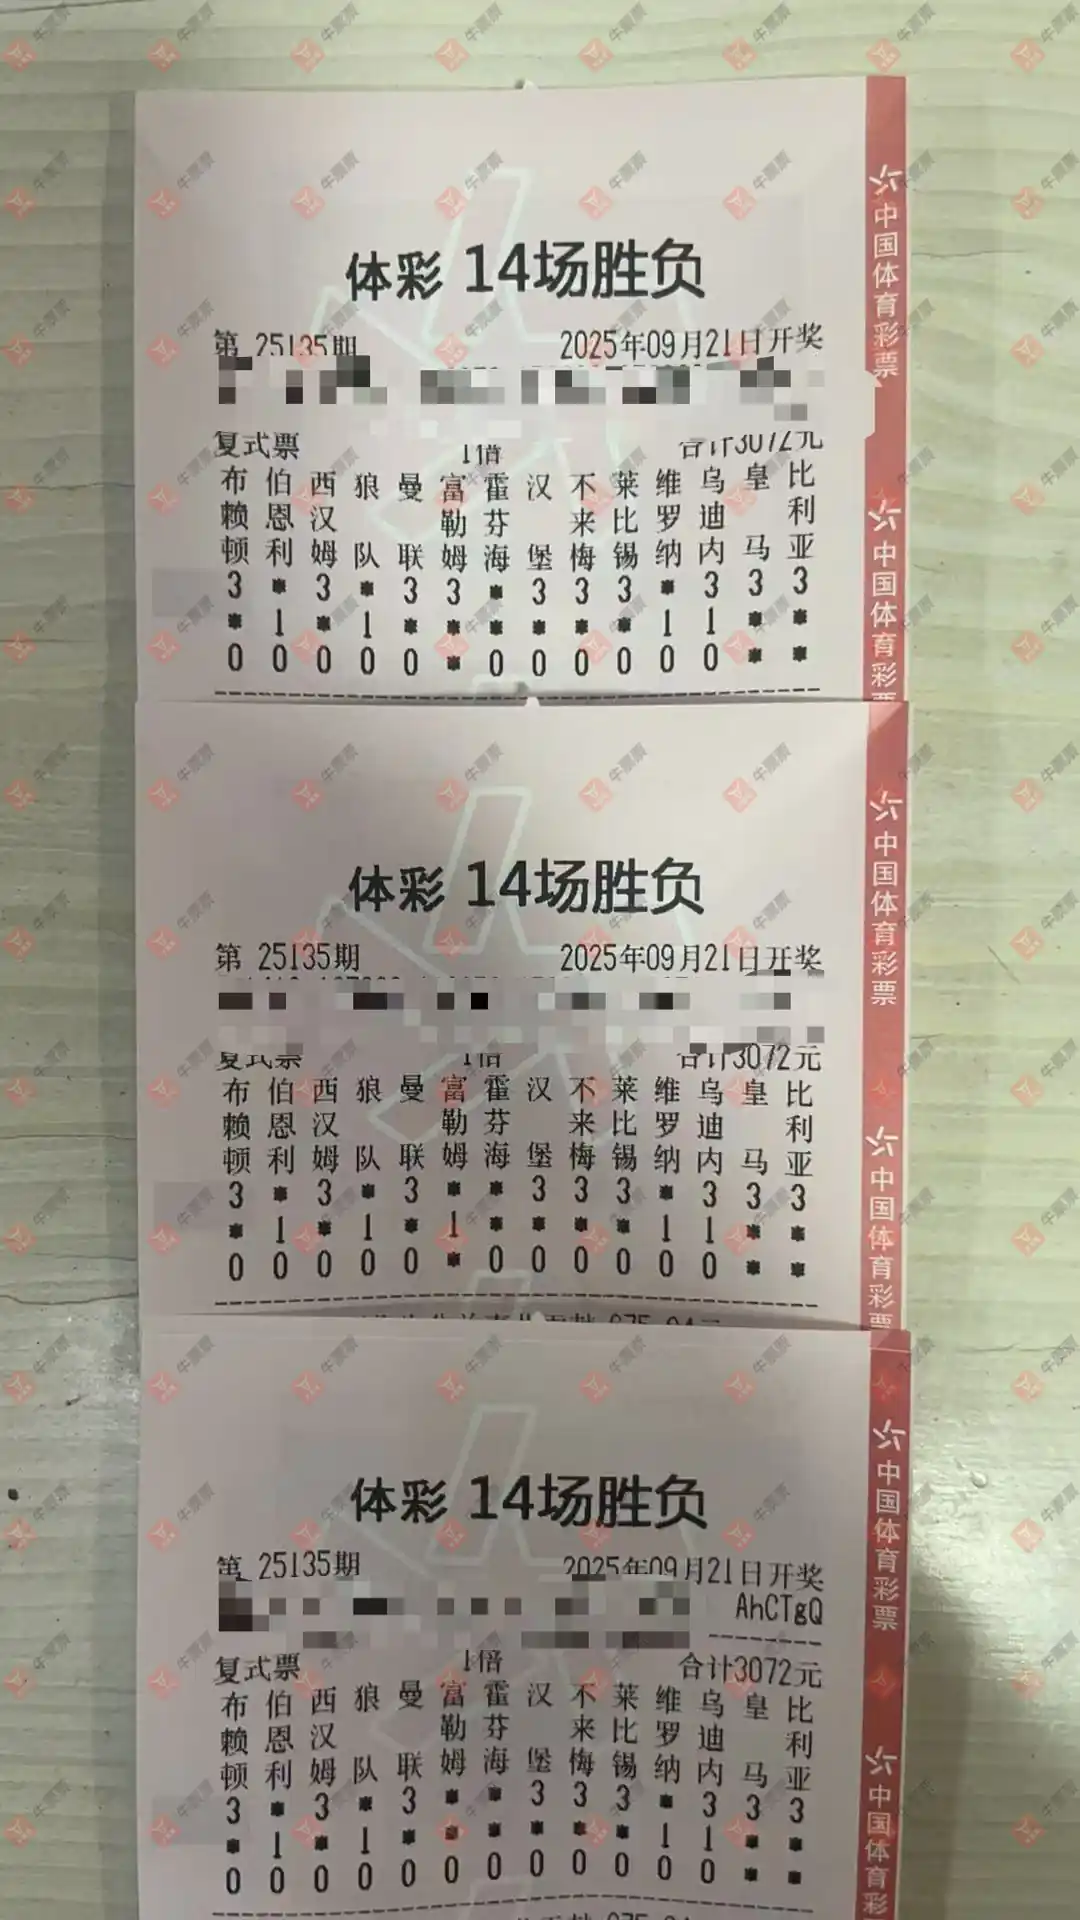 体彩 14场胜负
第 25135期 2025年09月21日开奖
复式票 1倍 合计3072元
布 伯 西 狼 曼 富 霍 汉 不 莱 维 乌 皇 比
赖 恩 汉 勒 芬 来 比 罗 迪 利
顿 利 姆 队 联 姆 海 堡 梅 锡 纳 内 马 亚
3 * 3 * 3 3 * 3 3 3 * 3 3 3
* 1 * 1 * * * * * * 1 1 * *
0 0 0 0 0 * 0 0 0 0 0 0 * *
体彩 14场胜负
第 25135期 2025年09月21日开奖
复式票 1倍 合计3072元
布 伯 西 狼 曼 富 霍 汉 不 莱 维 乌 皇 比
赖 恩 汉 勒 芬 来 比 罗 迪 利
顿 利 姆 队 联 姆 海 堡 梅 锡 纳 内 马 亚
3 * 3 * 3 * * 3 3 3 * 3 3 3
* 1 * 1 * 1 * * * * 1 1 * *
0 0 0 0 0 * 0 0 0 0 0 0 * *
体彩 14场胜负
第 25135期 2025年09月21日开奖
AhCTgQ
复式票 1倍 合计3072元
布 伯 西 狼 曼 富 霍 汉 不 莱 维 乌 皇 比
赖 恩 汉 勒 芬 来 比 罗 迪 利
顿 利 姆 队 联 姆 海 堡 梅 锡 纳 内 马 亚
3 * 3 * 3 * * 3 3 3 * 3 3 3
* 1 * 1 * * * * * * 1 1 * *
0 0 0 0 0 0 0 0 0 0 0 0 * *
中国体育彩票
中国体育彩票
中国体育彩票
中国体育彩票
中国体育彩票
中国体育彩
牛票票